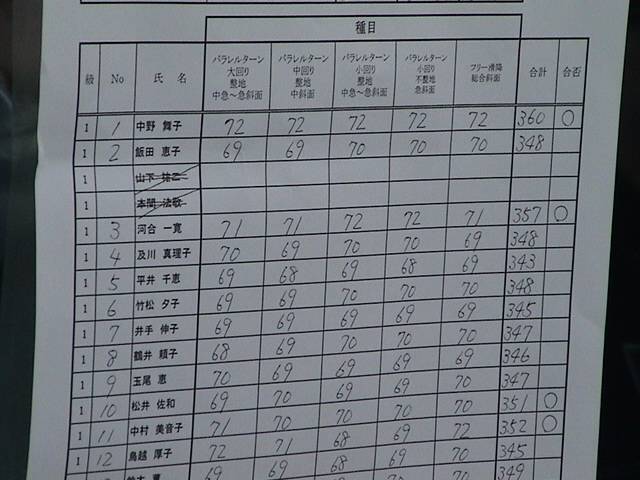 種目
級 No 氏 名 パラレルターン 大回り 整地 中急～急斜面 パラレルターン 中回り 整地 中斜面 パラレルターン 小回り 整地 中急～急斜面 パラレルターン 小回り 不整地 急斜面 フリー滑降 総合斜面 合計 合否
1 1 中野 舞子 72 72 72 72 72 360 ○
1 2 飯田 恵子 69 69 70 70 70 348
1 山下
1 本間
1 3 河合 一寛 71 71 72 72 71 357 ○
1 4 及川 真理子 70 69 70 70 69 348
1 5 平井 千恵 69 68 69 68 69 343
1 6 竹松 夕子 69 69 70 70 70 348
1 7 井手 伸子 69 69 69 69 69 345
1 8 鶴井 頼子 68 69 70 70 70 347
1 9 玉尾 恵 70 69 69 69 69 346
1 10 松井 佐和 69 70 69 69 70 347
1 11 中村 美音子 71 70 70 70 70 351 ○
1 12 鳥越 厚子 72 71 68 69 72 352 ○
69 69 68 69 70 345
70 70 349